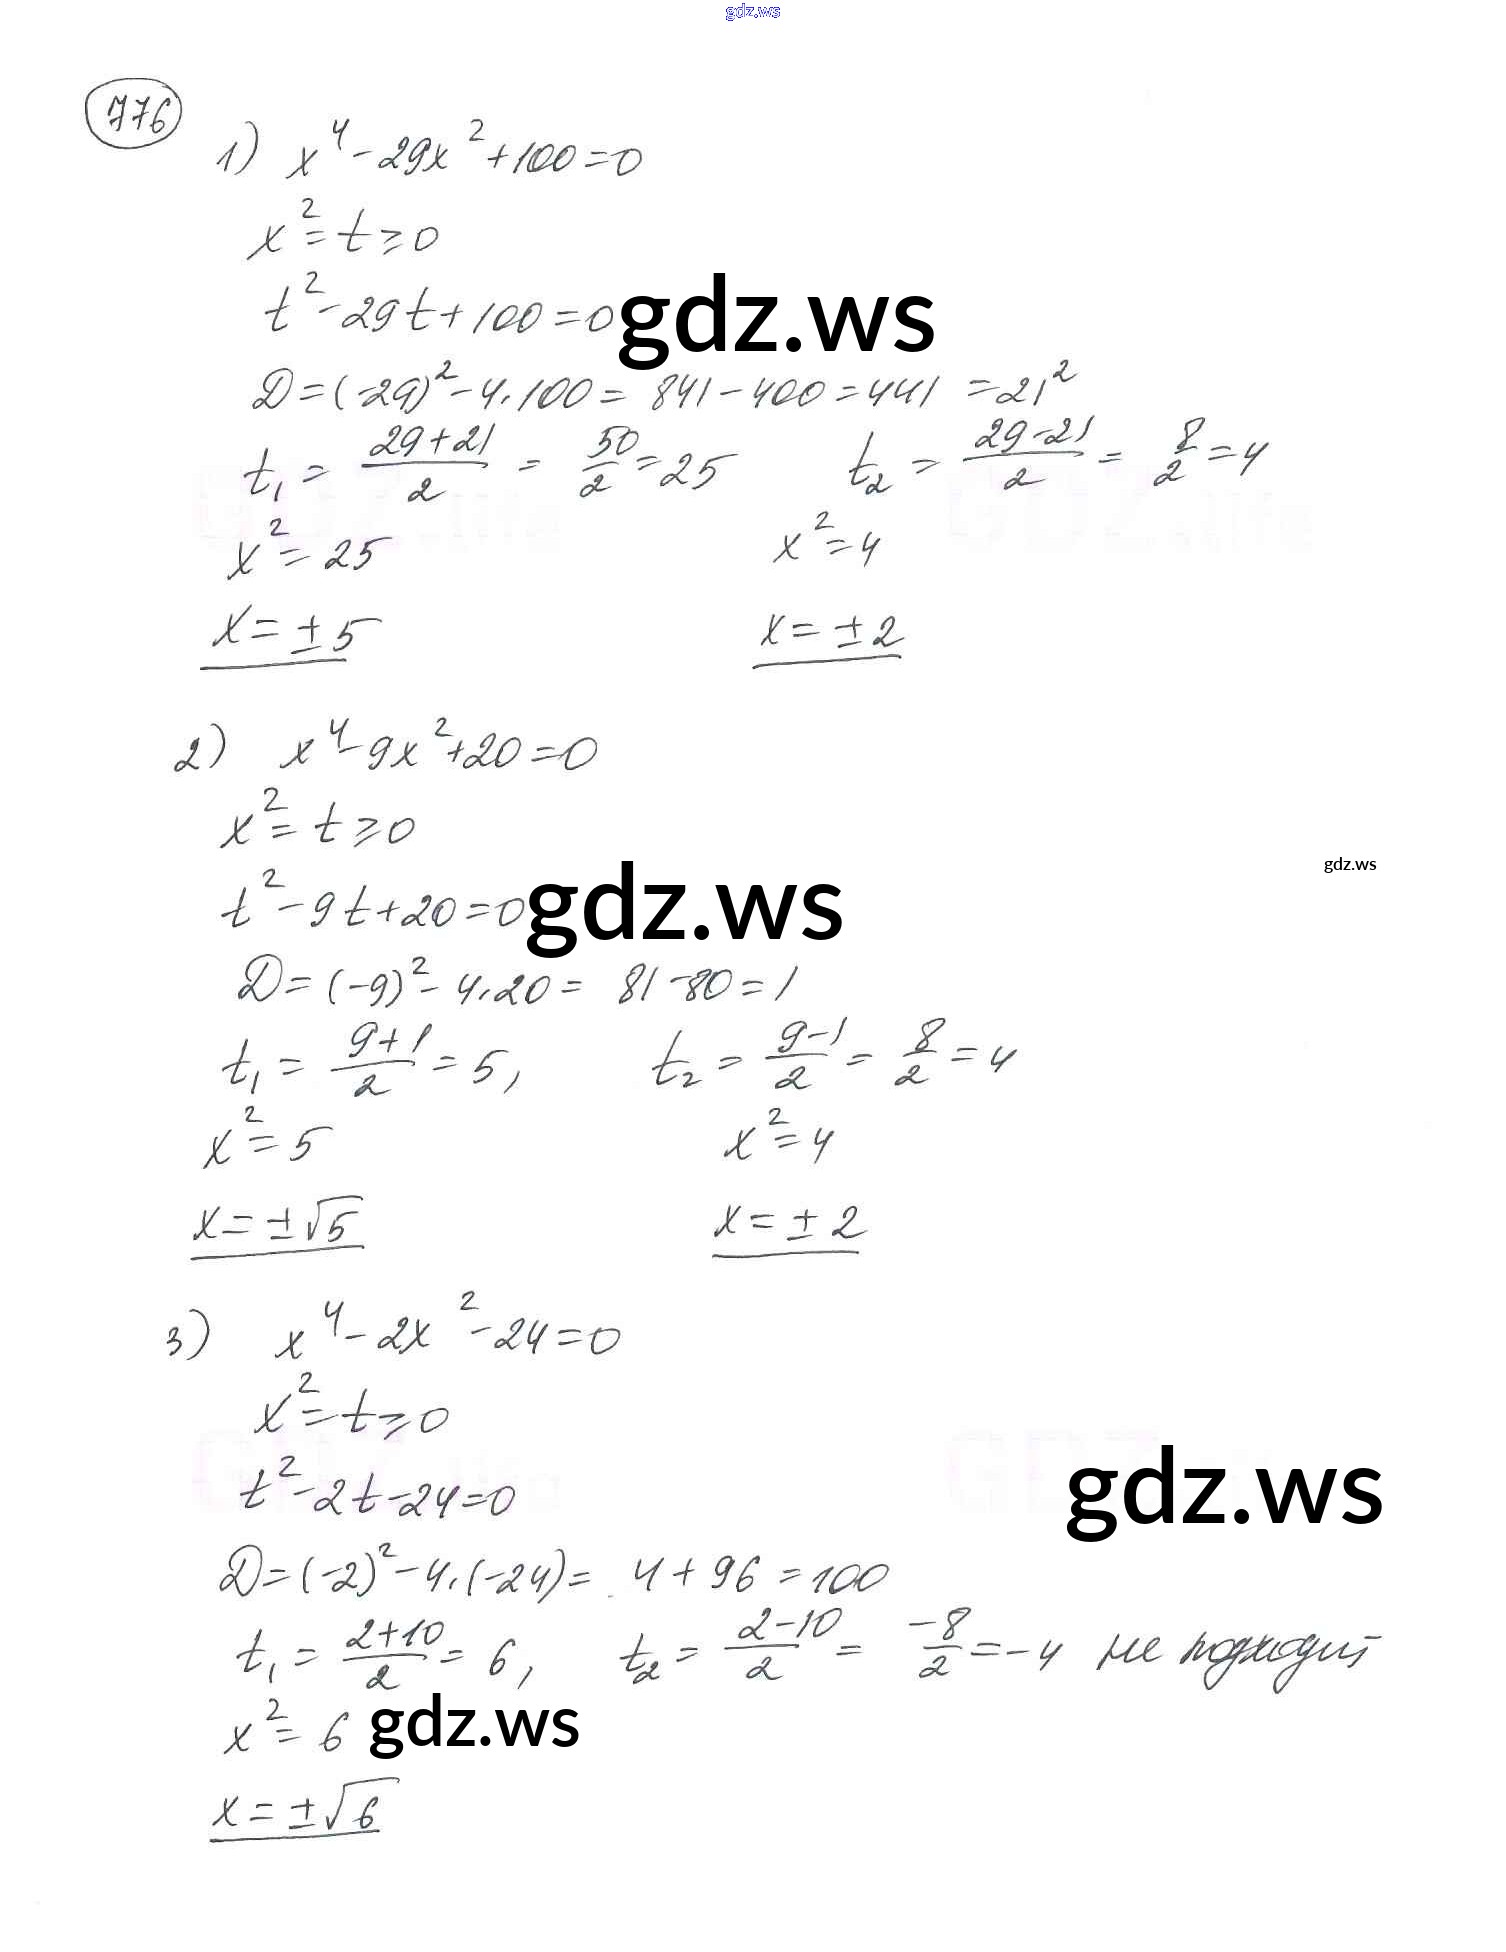 gdz.ws
776
1) x⁴-29x²+100=0
x²=t≥0
t²-29t+100=0 gdz.ws
D=(-29)²-4·100= 841-400=441 =21²
t₁ = (29+21)/2 = 50/2 =25 t₂ = (29-21)/2 = 8/2 =4
x²=25 x²=4
x=±5 x=±2
2) x⁴-9x²+20=0
x²=t≥0
gdz.ws
t²-9t+20=0 gdz.ws
D=(-9)²-4·20= 81-80=1
t₁ = (9+1)/2 = 5, t₂ = (9-1)/2 = 8/2 =4
x²=5 x²=4
x=±√5 x=±2
3) x⁴-2x²-24=0
x²=t≥0
t²-2t-24=0 gdz.ws
D=(-2)²-4·(-24)= 4+96=100
t₁ = (2+10)/2 = 6, t₂ = (2-10)/2 = -8/2 =-4 не подходит
x²=6 gdz.ws
x=±√6